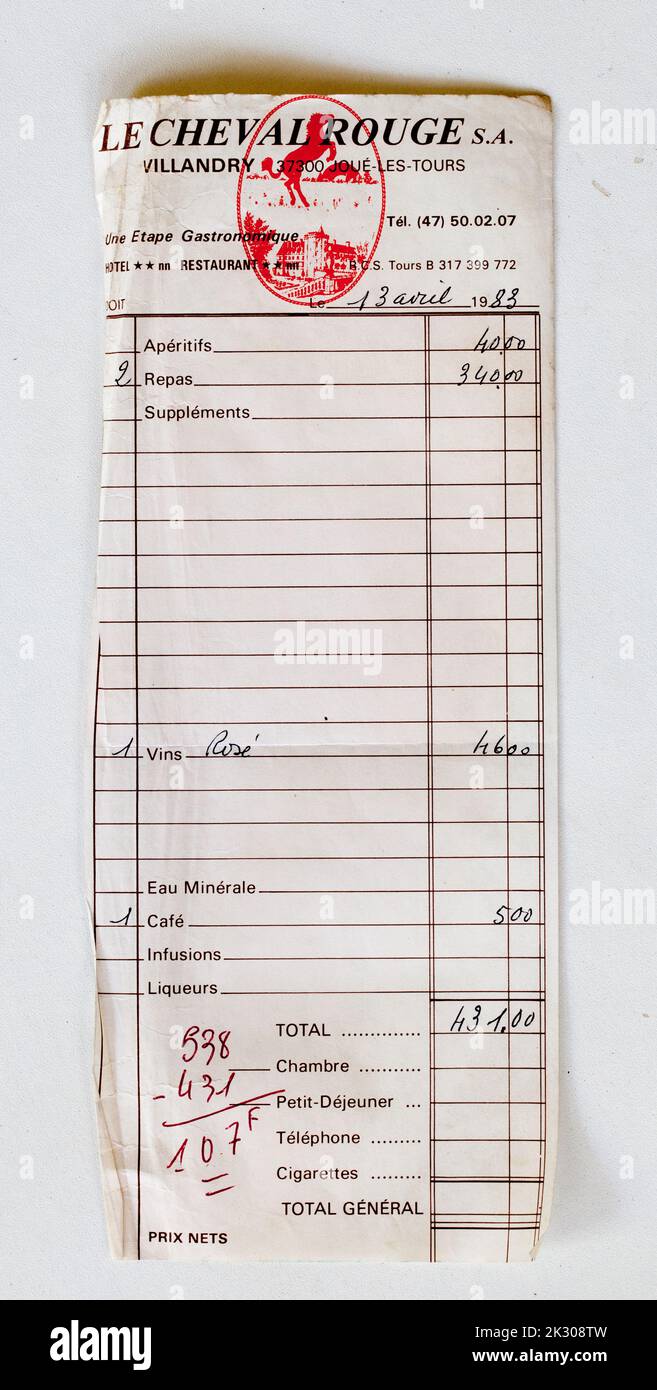 LE CHEVAL ROUGE S.A.
VILLANDRY 37300 JOUÉ-LES-TOURS
Tél. (47) 50.02.07
Une Etape Gastronomique
HOTEL ★★ nn RESTAURANT ★★ nn R.C.S. Tours B 317 399 772
DOIT Le 13 avril 1983
Apéritifs 40.00
2 Repas 340.00
Suppléments
1 Vins Rosé 46 00
Eau Minérale
1 Café 5 00
Infusions
Liqueurs
TOTAL .............. 431.00
538
Chambre ...........
- 431
Petit-Déjeuner ...
107 F
Téléphone .........
Cigarettes .........
TOTAL GÉNÉRAL
PRIX NETS
alamy
alamy
alamy
alamy
Image ID: 2K308TW
www.alamy.com